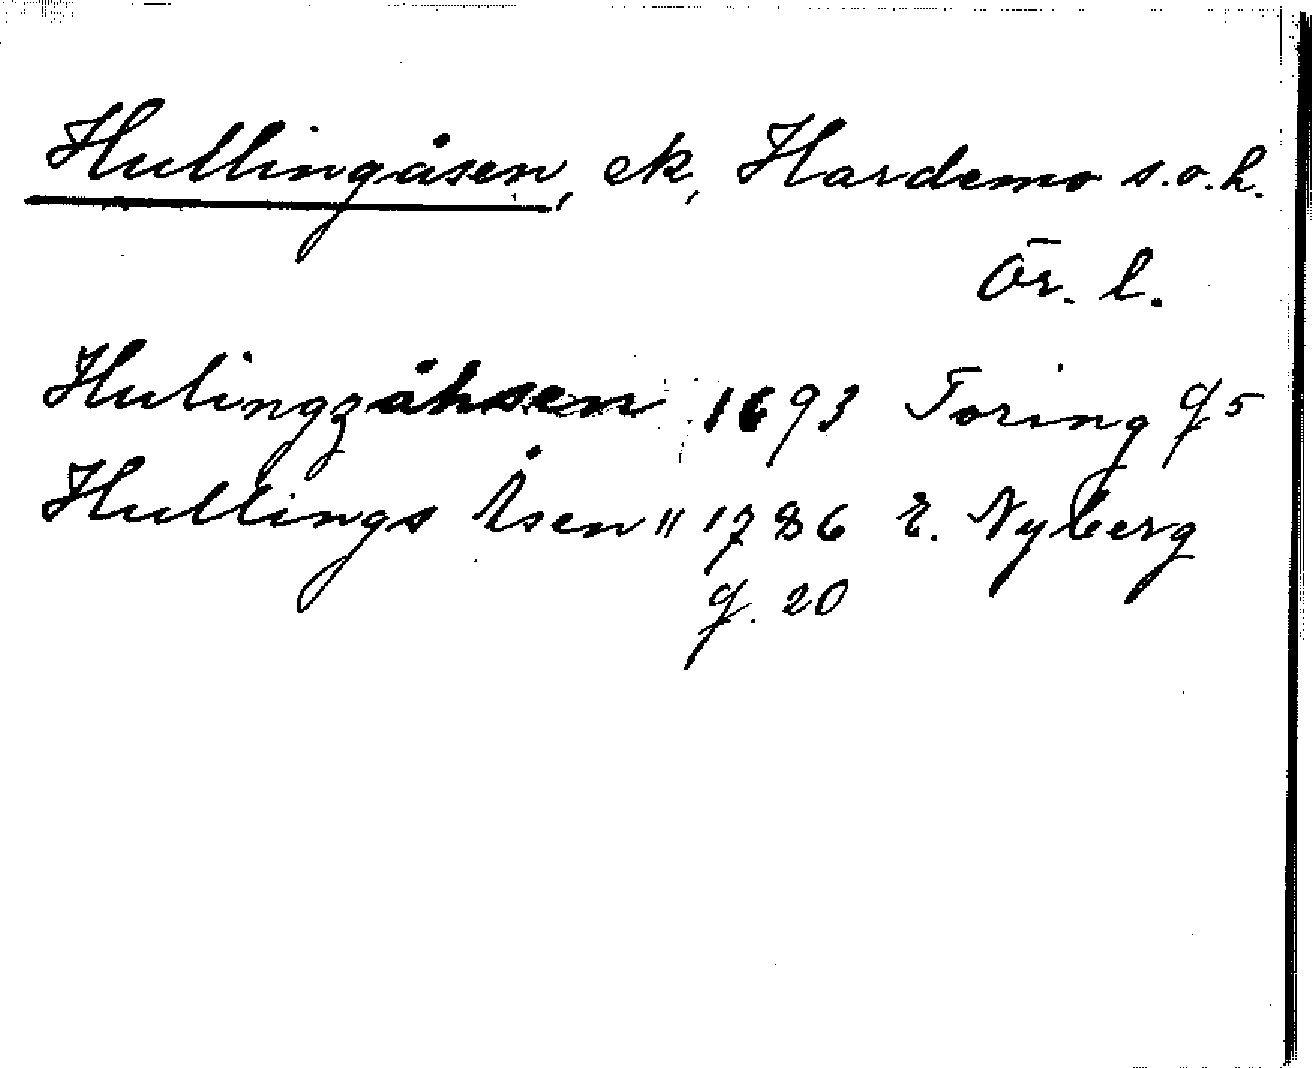 Hullingåsen, ek, Hardemo s.o.h.
Ör. l.
Hulingzåhsen 1693 Toring g5
Hullings Åsen " 1786 E. Nyberg
g. 20